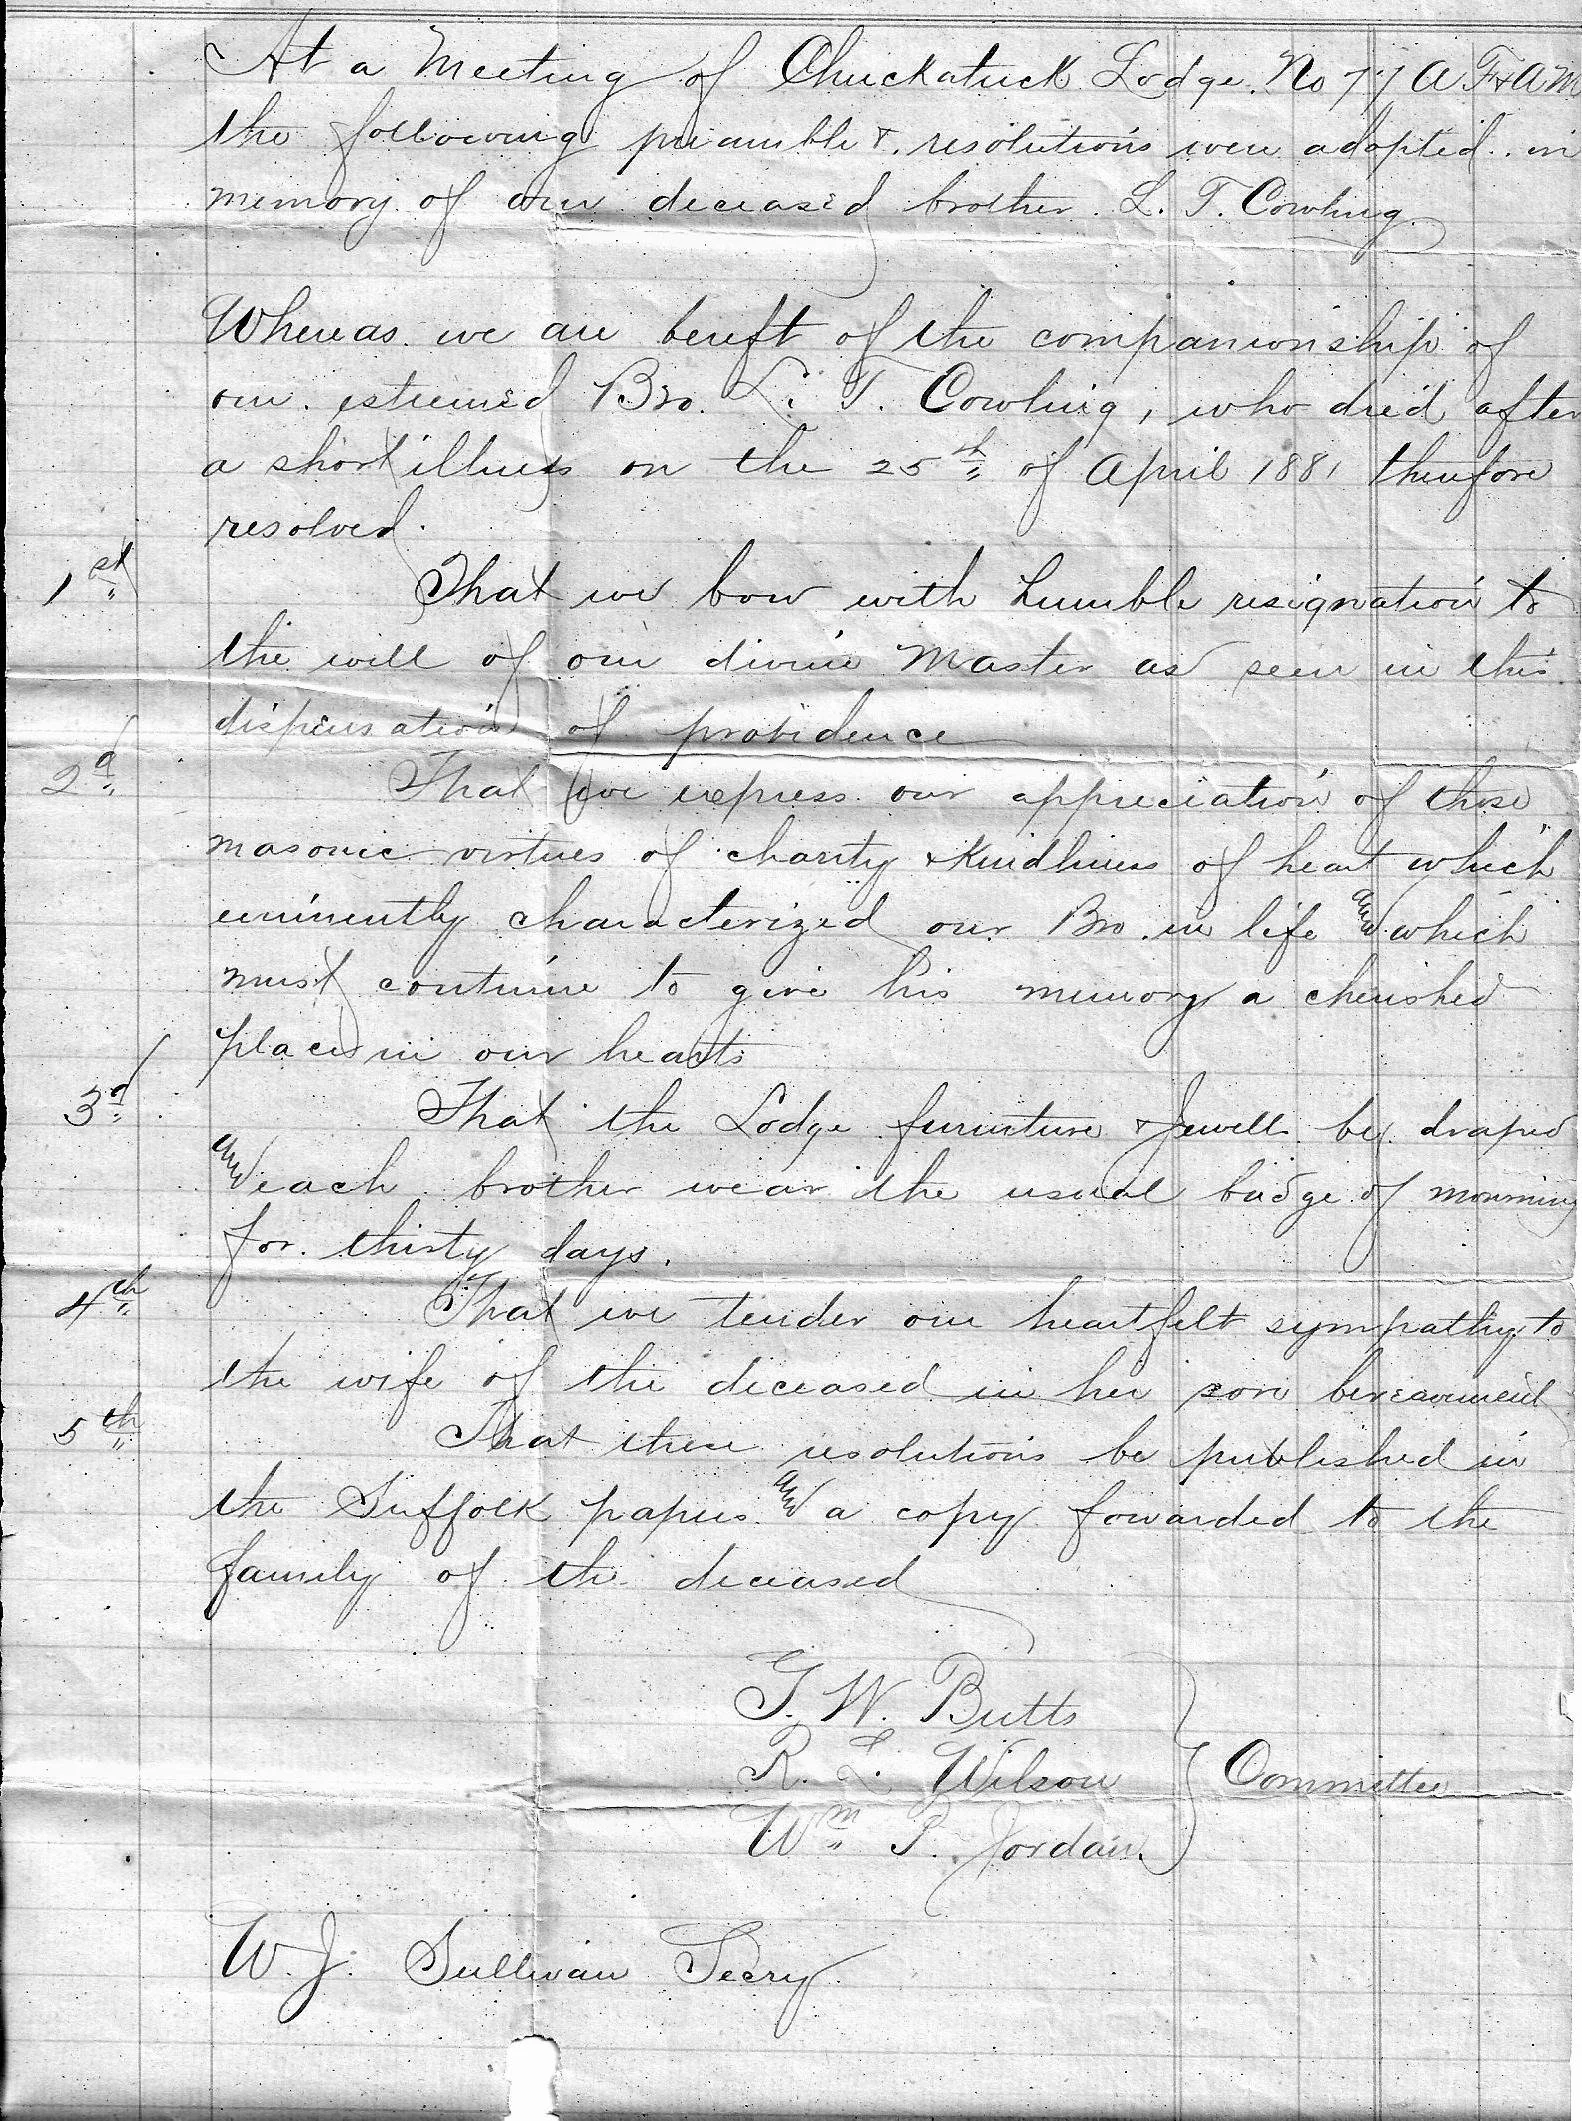 At a Meeting of Chuckatuck Lodge. No 77 A F & A M
the following preamble & resolutions were adopted in
memory of our deceased brother L. T. Cowling
Whereas we are bereft of the companionship of
our esteemed Bro. L. T. Cowling, who died after
a short illness on the 25th of April 1881 therefore
resolved.
1st That we bow with humble resignation to
the will of our divine Master as seen in this
dispensation of providence
2d That we express our appreciation of those
masonic virtues of charity & kindliness of heart which
eminently characterized our Bro. in life and which
must continue to give his memory a cherished
place in our hearts
3d That the Lodge furniture & Jewells be draped
and each brother wear the usual badge of mourning
for thirty days.
4th That we tender our heartfelt sympathy to
the wife of the deceased in her sore bereavement
5th That these resolutions be published in
the Suffolk papers and a copy forwarded to the
family of the deceased
G. W. Butts
R. L. Wilson Committee
Wm P. Jordan.
W. J. Sullivan Secry